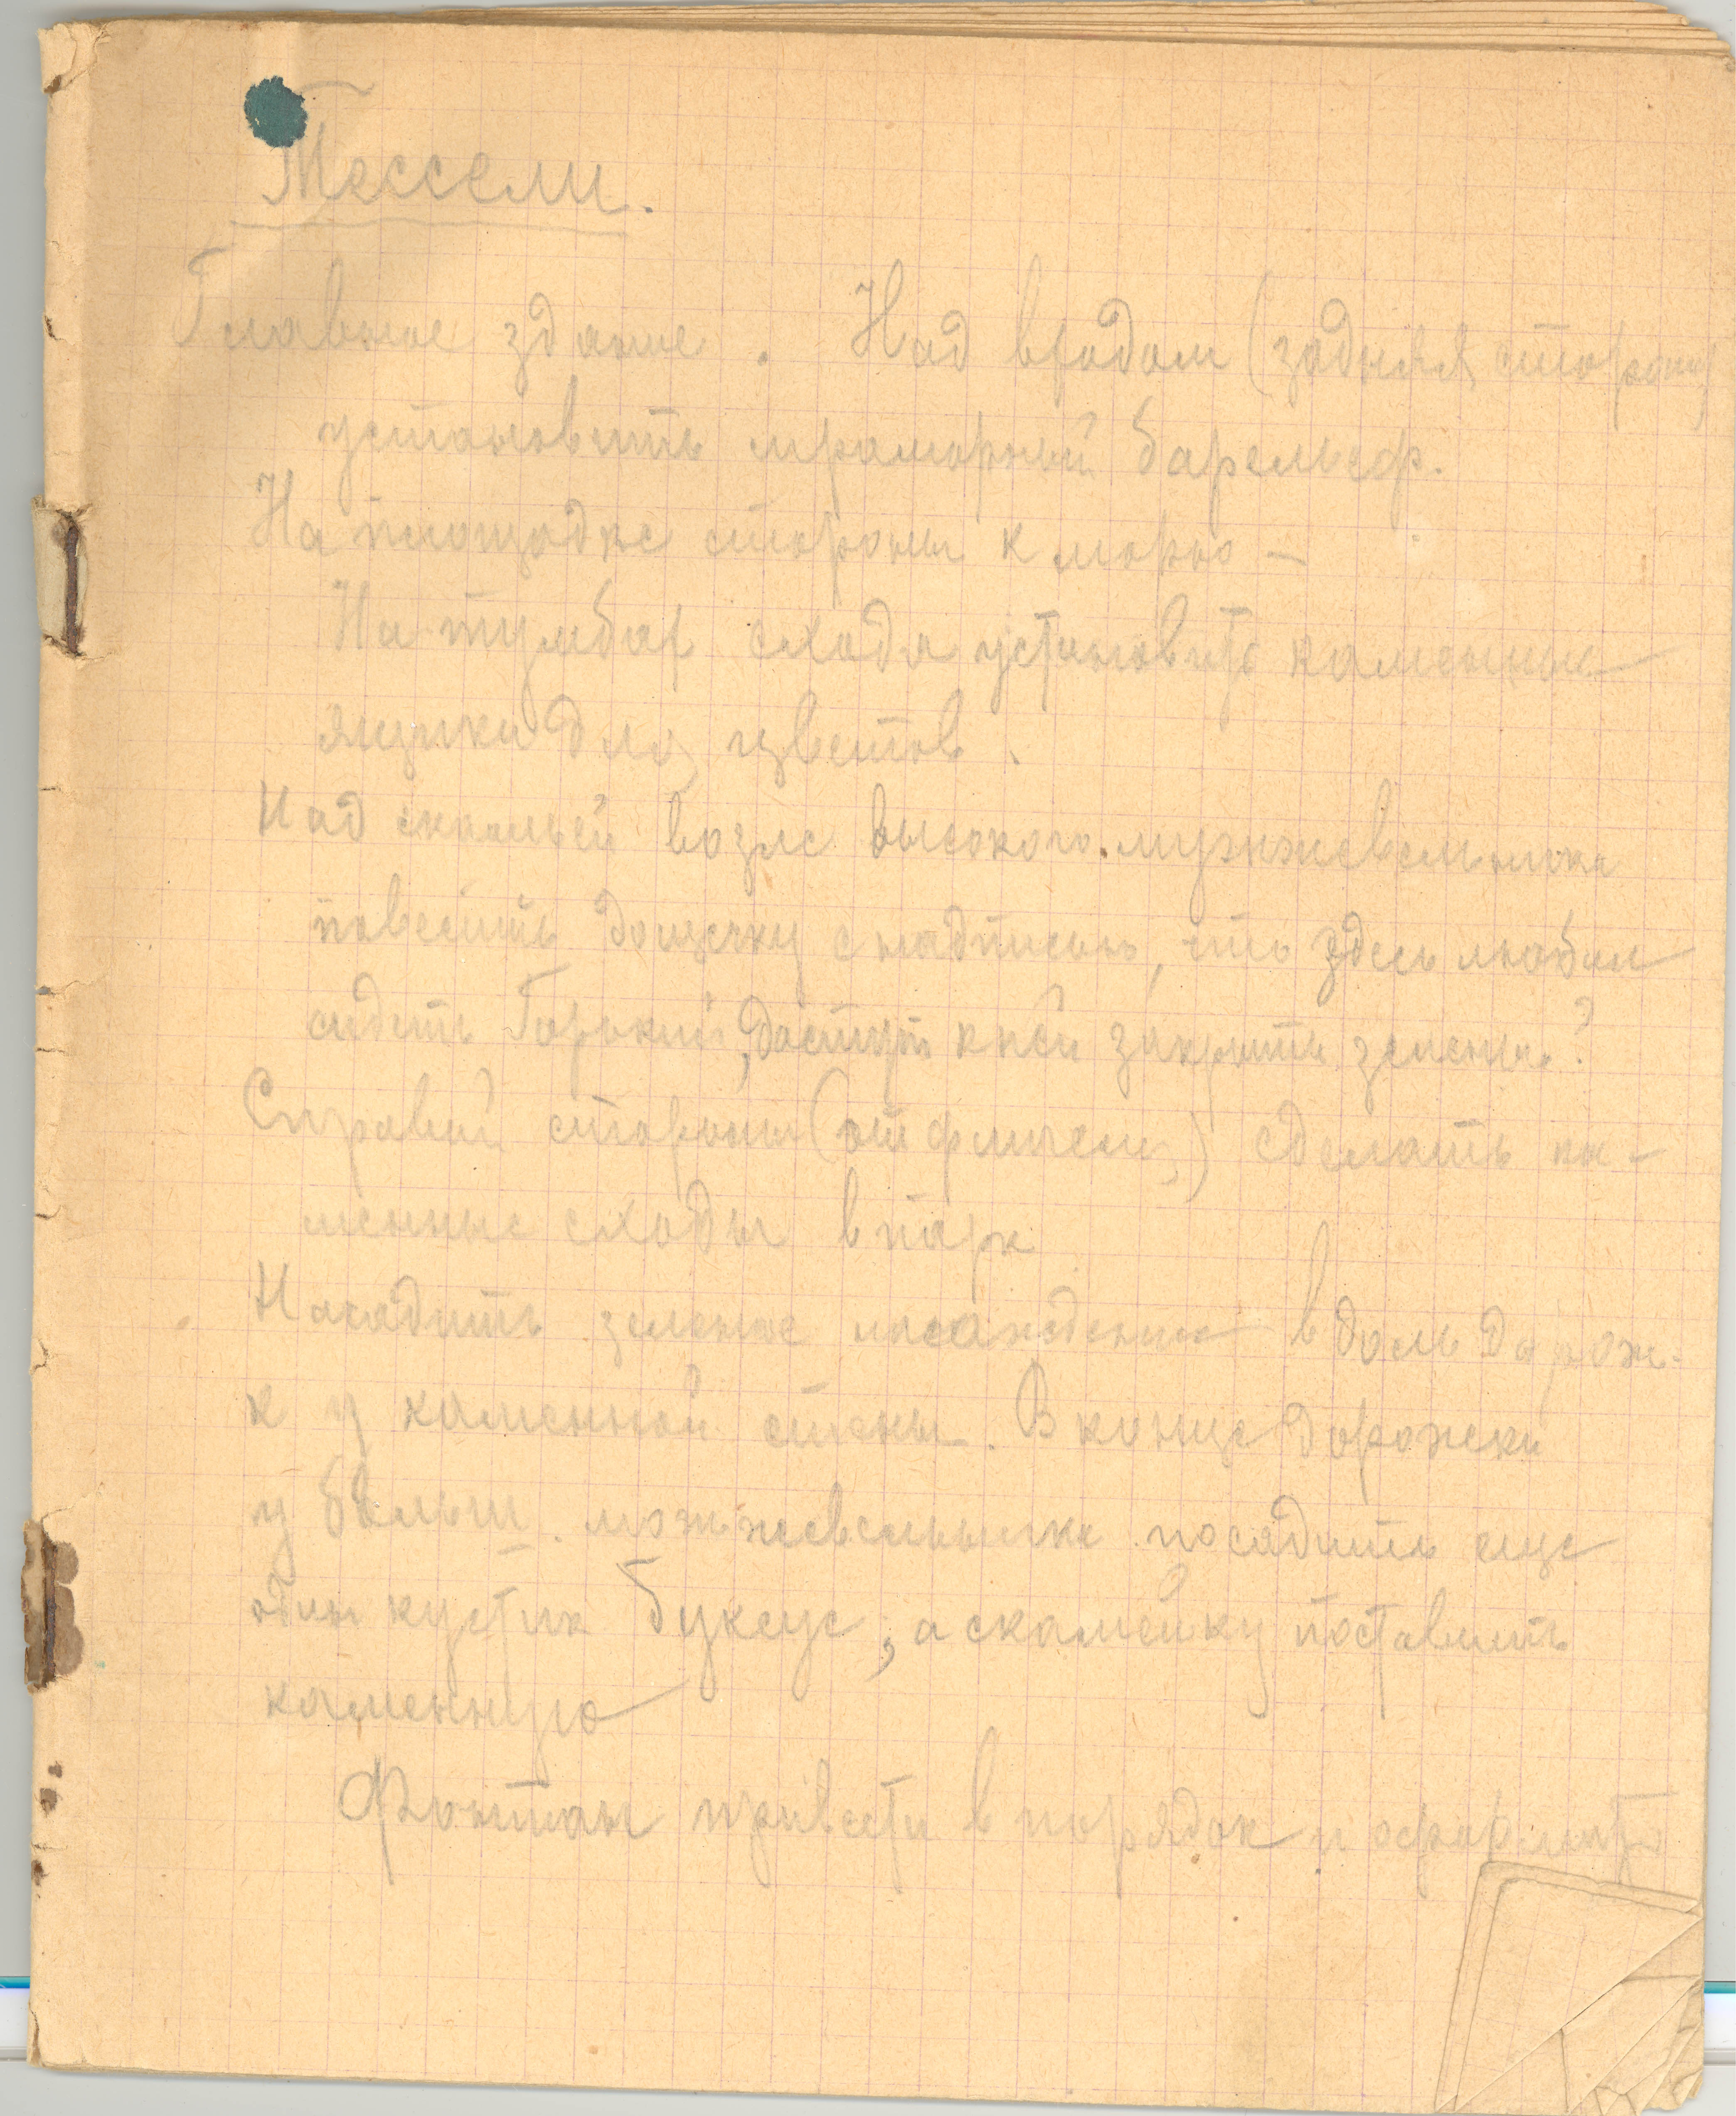 Тессели.
Главное здание. Над входом (задняя сторона)
установить мраморный барельеф.
На площадке стороны к морю —
На тумбах схода установить каменные
ящики для цветов.
Над скамьей возле высокого можжевельника
повесить дощечку с надписью, что здесь любил
сидеть Горький, доступ к ней закрыть зеленью?
С правой стороны (от флигеля) сделать ка-
менные сходы в парк
Насадить зеленые насаждения вдоль дорож-
к у каменной стены. В конце дорожки
у больш. можжевельника посадить еще
один кустик буксус, а скамейку поставить
каменную
Фонтан привести в порядок и оформить